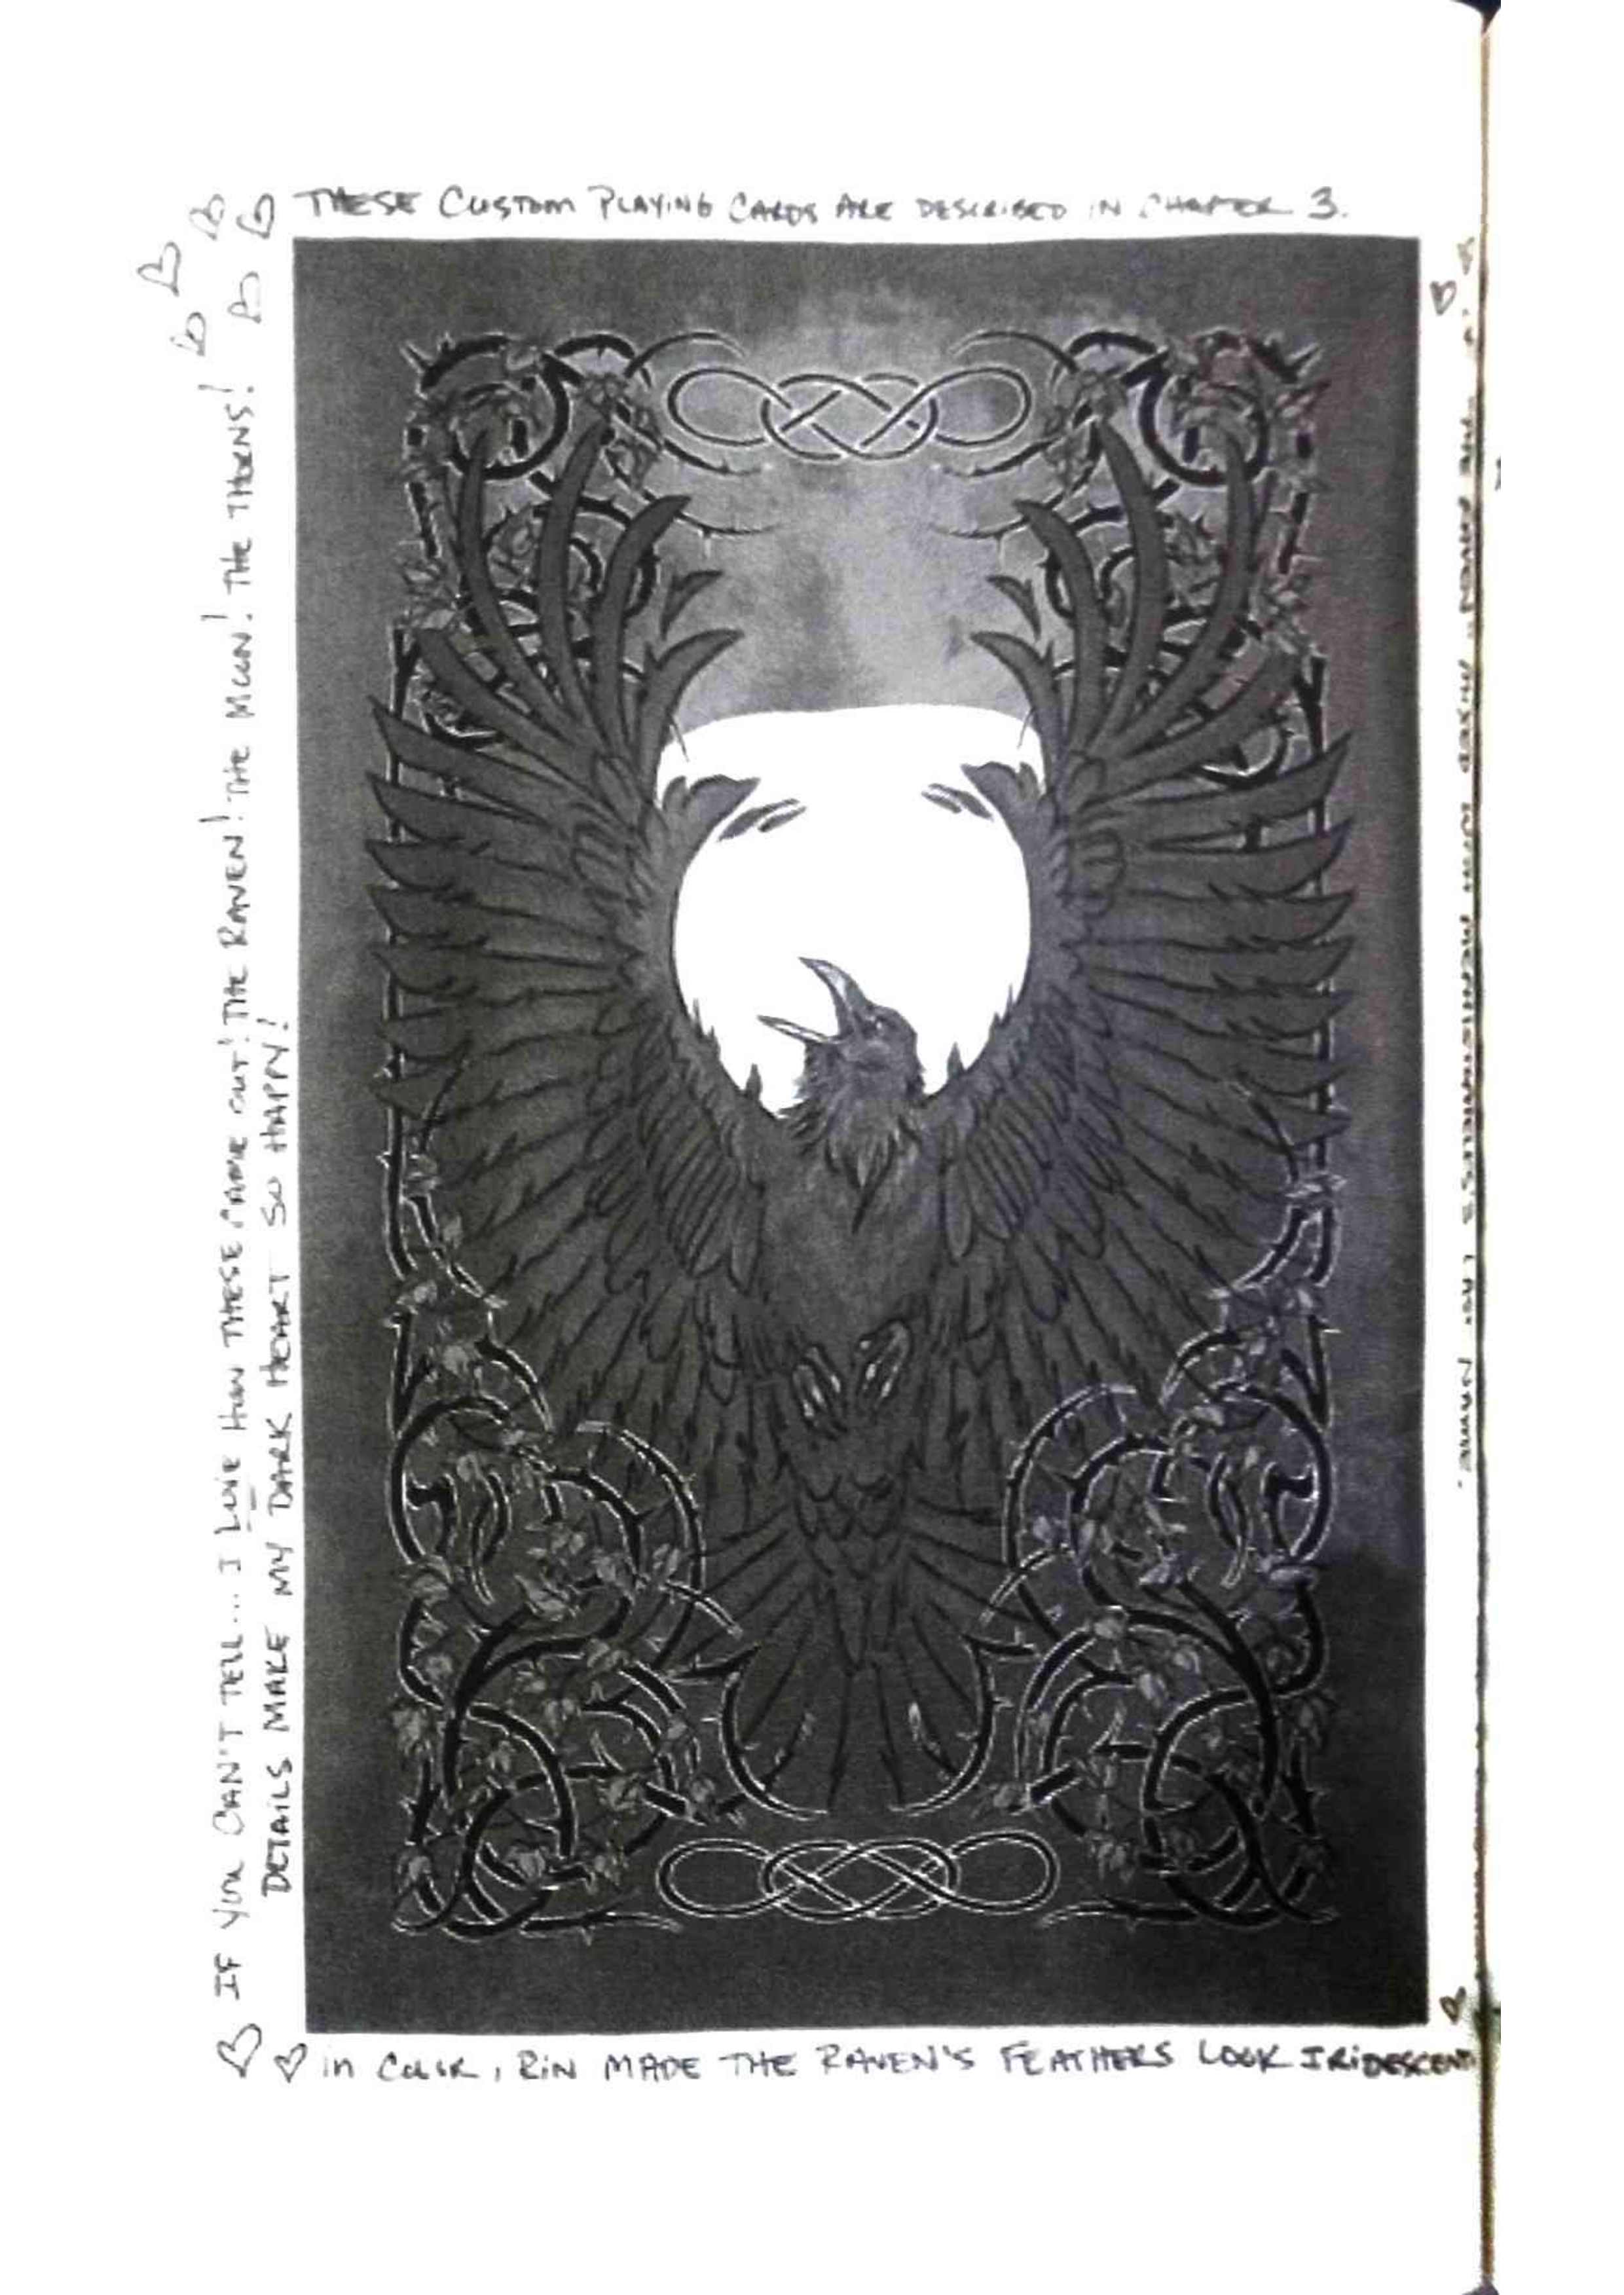 THESE CUSTOM PLAYING CARDS ARE DESCRIBED IN CHAPTER 3.
IF YOU CAN'T TELL... I LOVE HOW THESE CAME OUT! THE RAVEN! THE MOON! THE THORNS!
DETAILS MAKE MY DARK HEART SO HAPPY!
in COLOR, RIN MADE THE RAVEN'S FEATHERS LOOK IRIDESCENT